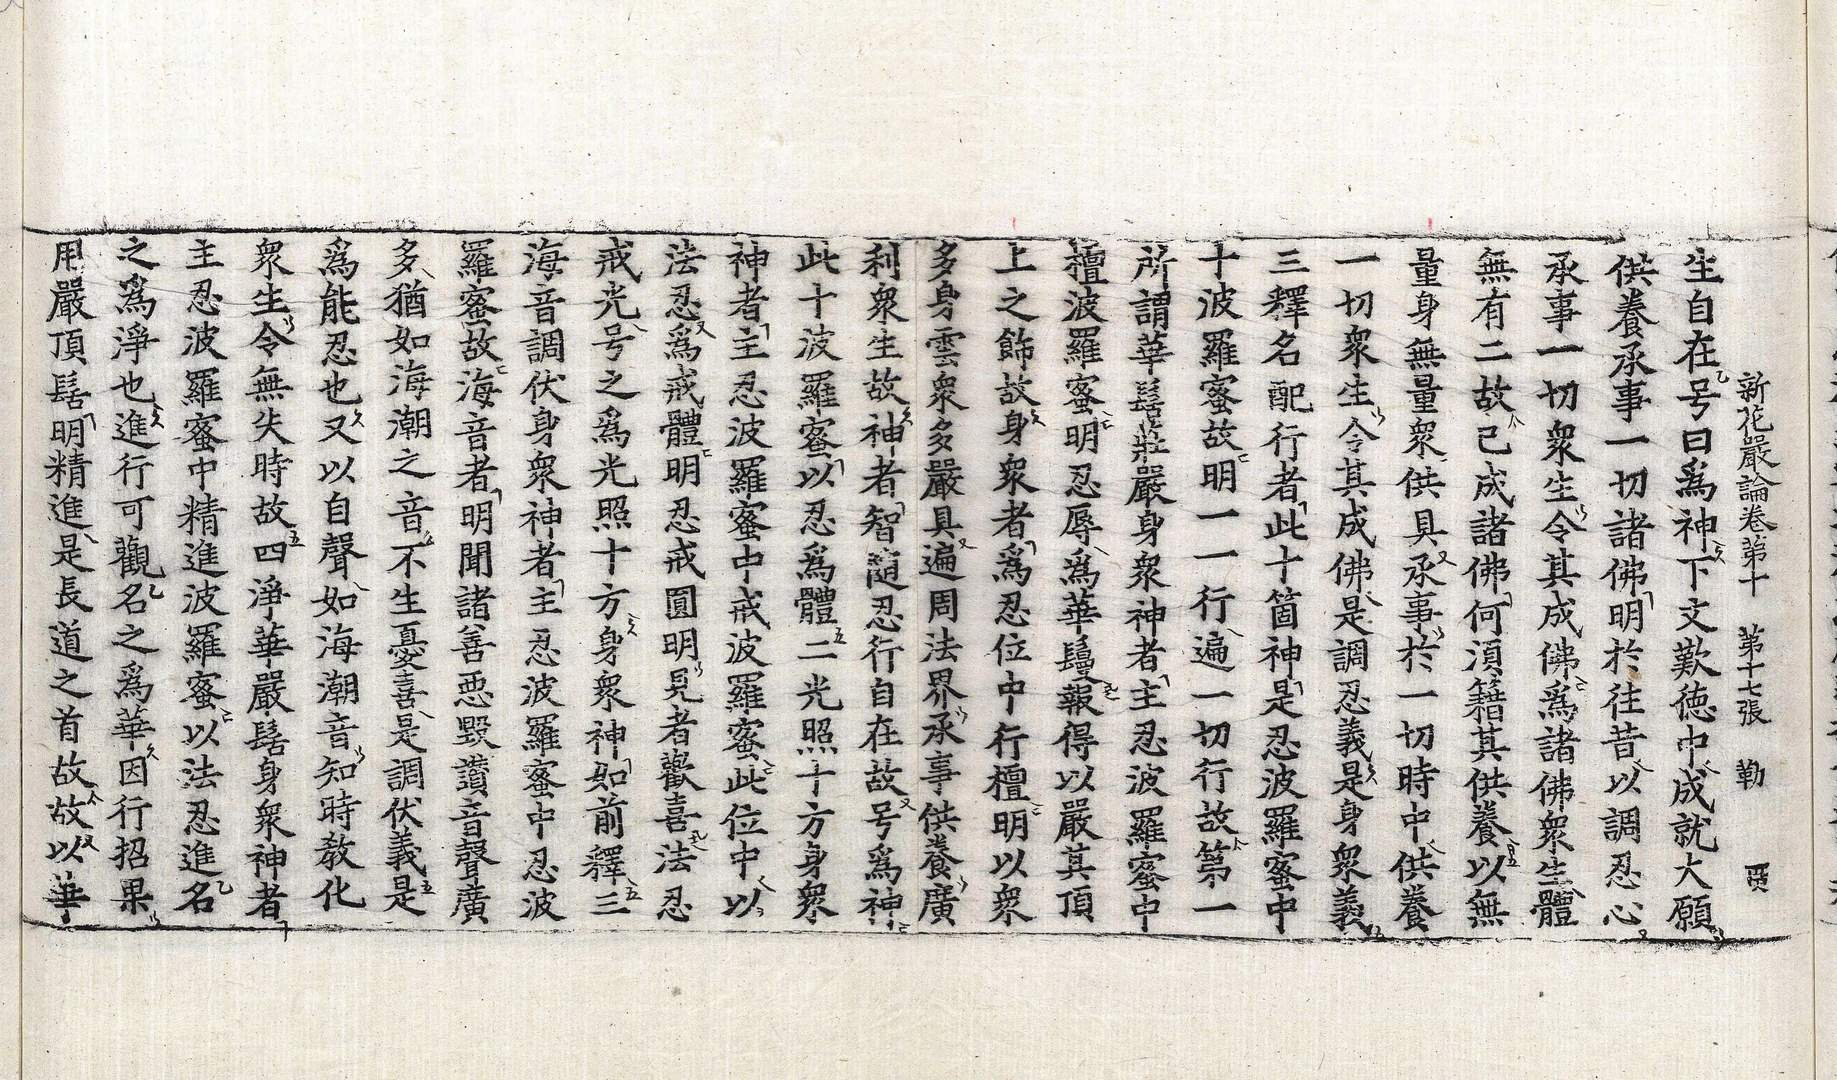 新花嚴論卷第十　第十七張　勒
生自在号曰爲神下文歎德中成就大願
供養承事一切諸佛明於往昔以調忍心
承事一切衆生令其成佛爲諸佛衆生體
無有二故已成諸佛何須籍其供養以無
量身無量衆供具承事於一切時中供養
一切衆生令其成佛是調忍義是身衆義
三釋名配行者此十箇神是忍波羅蜜中
十波羅蜜故明一一行遍一切行故第一
所謂華髻莊嚴身衆神者主忍波羅蜜中
檀波羅蜜明忍辱爲華鬘報得以嚴其頂
上之飾故身衆者爲忍位中行檀明以衆
多身雲衆多嚴具遍周法界承事供養廣
利衆生故神者智隨忍行自在故号爲神
此十波羅蜜以忍爲體二光照十方身衆
神者主忍波羅蜜中戒波羅蜜此位中以
法忍爲戒體明忍戒圓明見者歡喜法忍
戒光号之爲光照十方身衆神如前釋三
海音調伏身衆神者主忍波羅蜜中忍波
羅蜜故海音者明聞諸善惡毀讚音聲廣
多猶如海潮之音不生憂喜是調伏義是
爲能忍也又以自聲如海潮音知時教化
衆生令無失時故四淨華嚴髻身衆神者
主忍波羅蜜中精進波羅蜜以法忍進名
之爲淨也進行可觀名之爲華因行招果
用嚴頂髻明精進是長道之首故故以華